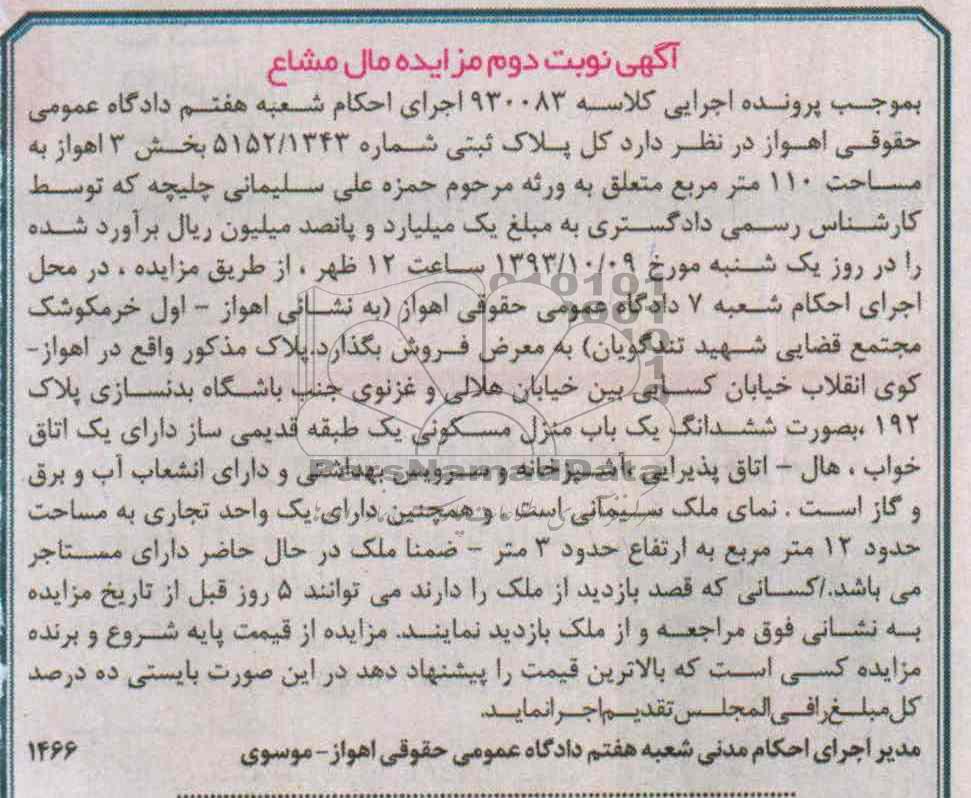 آگهی نوبت دوم مزایده مال مشاع
بموجب پرونده اجرایی کلاسه ۹۳۰۰۸۳ اجرای احکام شعبه هفتم دادگاه عمومی
حقوقی اهواز در نظر دارد کل پلاک ثبتی شماره ۵۱۵۲/۱۳۴۳ بخش ۳ اهواز به
مساحت ۱۱۰ متر مربع متعلق به ورثه مرحوم حمزه علی سلیمانی چلیچه که توسط
کارشناس رسمی دادگستری به مبلغ یک میلیارد و پانصد میلیون ریال برآورد شده
را در روز یک شنبه مورخ ۱۳۹۳/۱۰/۰۹ ساعت ۱۲ ظهر ، از طریق مزایده ، در محل
اجرای احکام شعبه ۷ دادگاه عمومی حقوقی اهواز (به نشانی اهواز - اول خرمکوشک
مجتمع قضایی شهید تندگویان) به معرض فروش بگذارد.پلاک مذکور واقع در اهواز-
کوی انقلاب خیابان کسایی بین خیابان هلالی و غزنوی جنب باشگاه بدنسازی پلاک
۱۹۲ ،بصورت ششدانگ یک باب منزل مسکونی یک طبقه قدیمی ساز دارای یک اتاق
خواب ، هال - اتاق پذیرایی ،آشپزخانه و سرویس بهداشتی و دارای انشعاب آب و برق
و گاز است . نمای ملک سیمانی است و همچنین دارای یک واحد تجاری به مساحت
حدود ۱۲ متر مربع به ارتفاع حدود ۳ متر - ضمنا ملک در حال حاضر دارای مستاجر
می باشد./کسانی که قصد بازدید از ملک را دارند می توانند ۵ روز قبل از تاریخ مزایده
به نشانی فوق مراجعه و از ملک بازدید نمایند. مزایده از قیمت پایه شروع و برنده
مزایده کسی است که بالاترین قیمت را پیشنهاد دهد در این صورت بایستی ده درصد
کل مبلغ را فی المجلس تقدیم اجرا نماید.
مدیر اجرای احکام مدنی شعبه هفتم دادگاه عمومی حقوقی اهواز - موسوی ۱۴۶۶
ParsNamadData